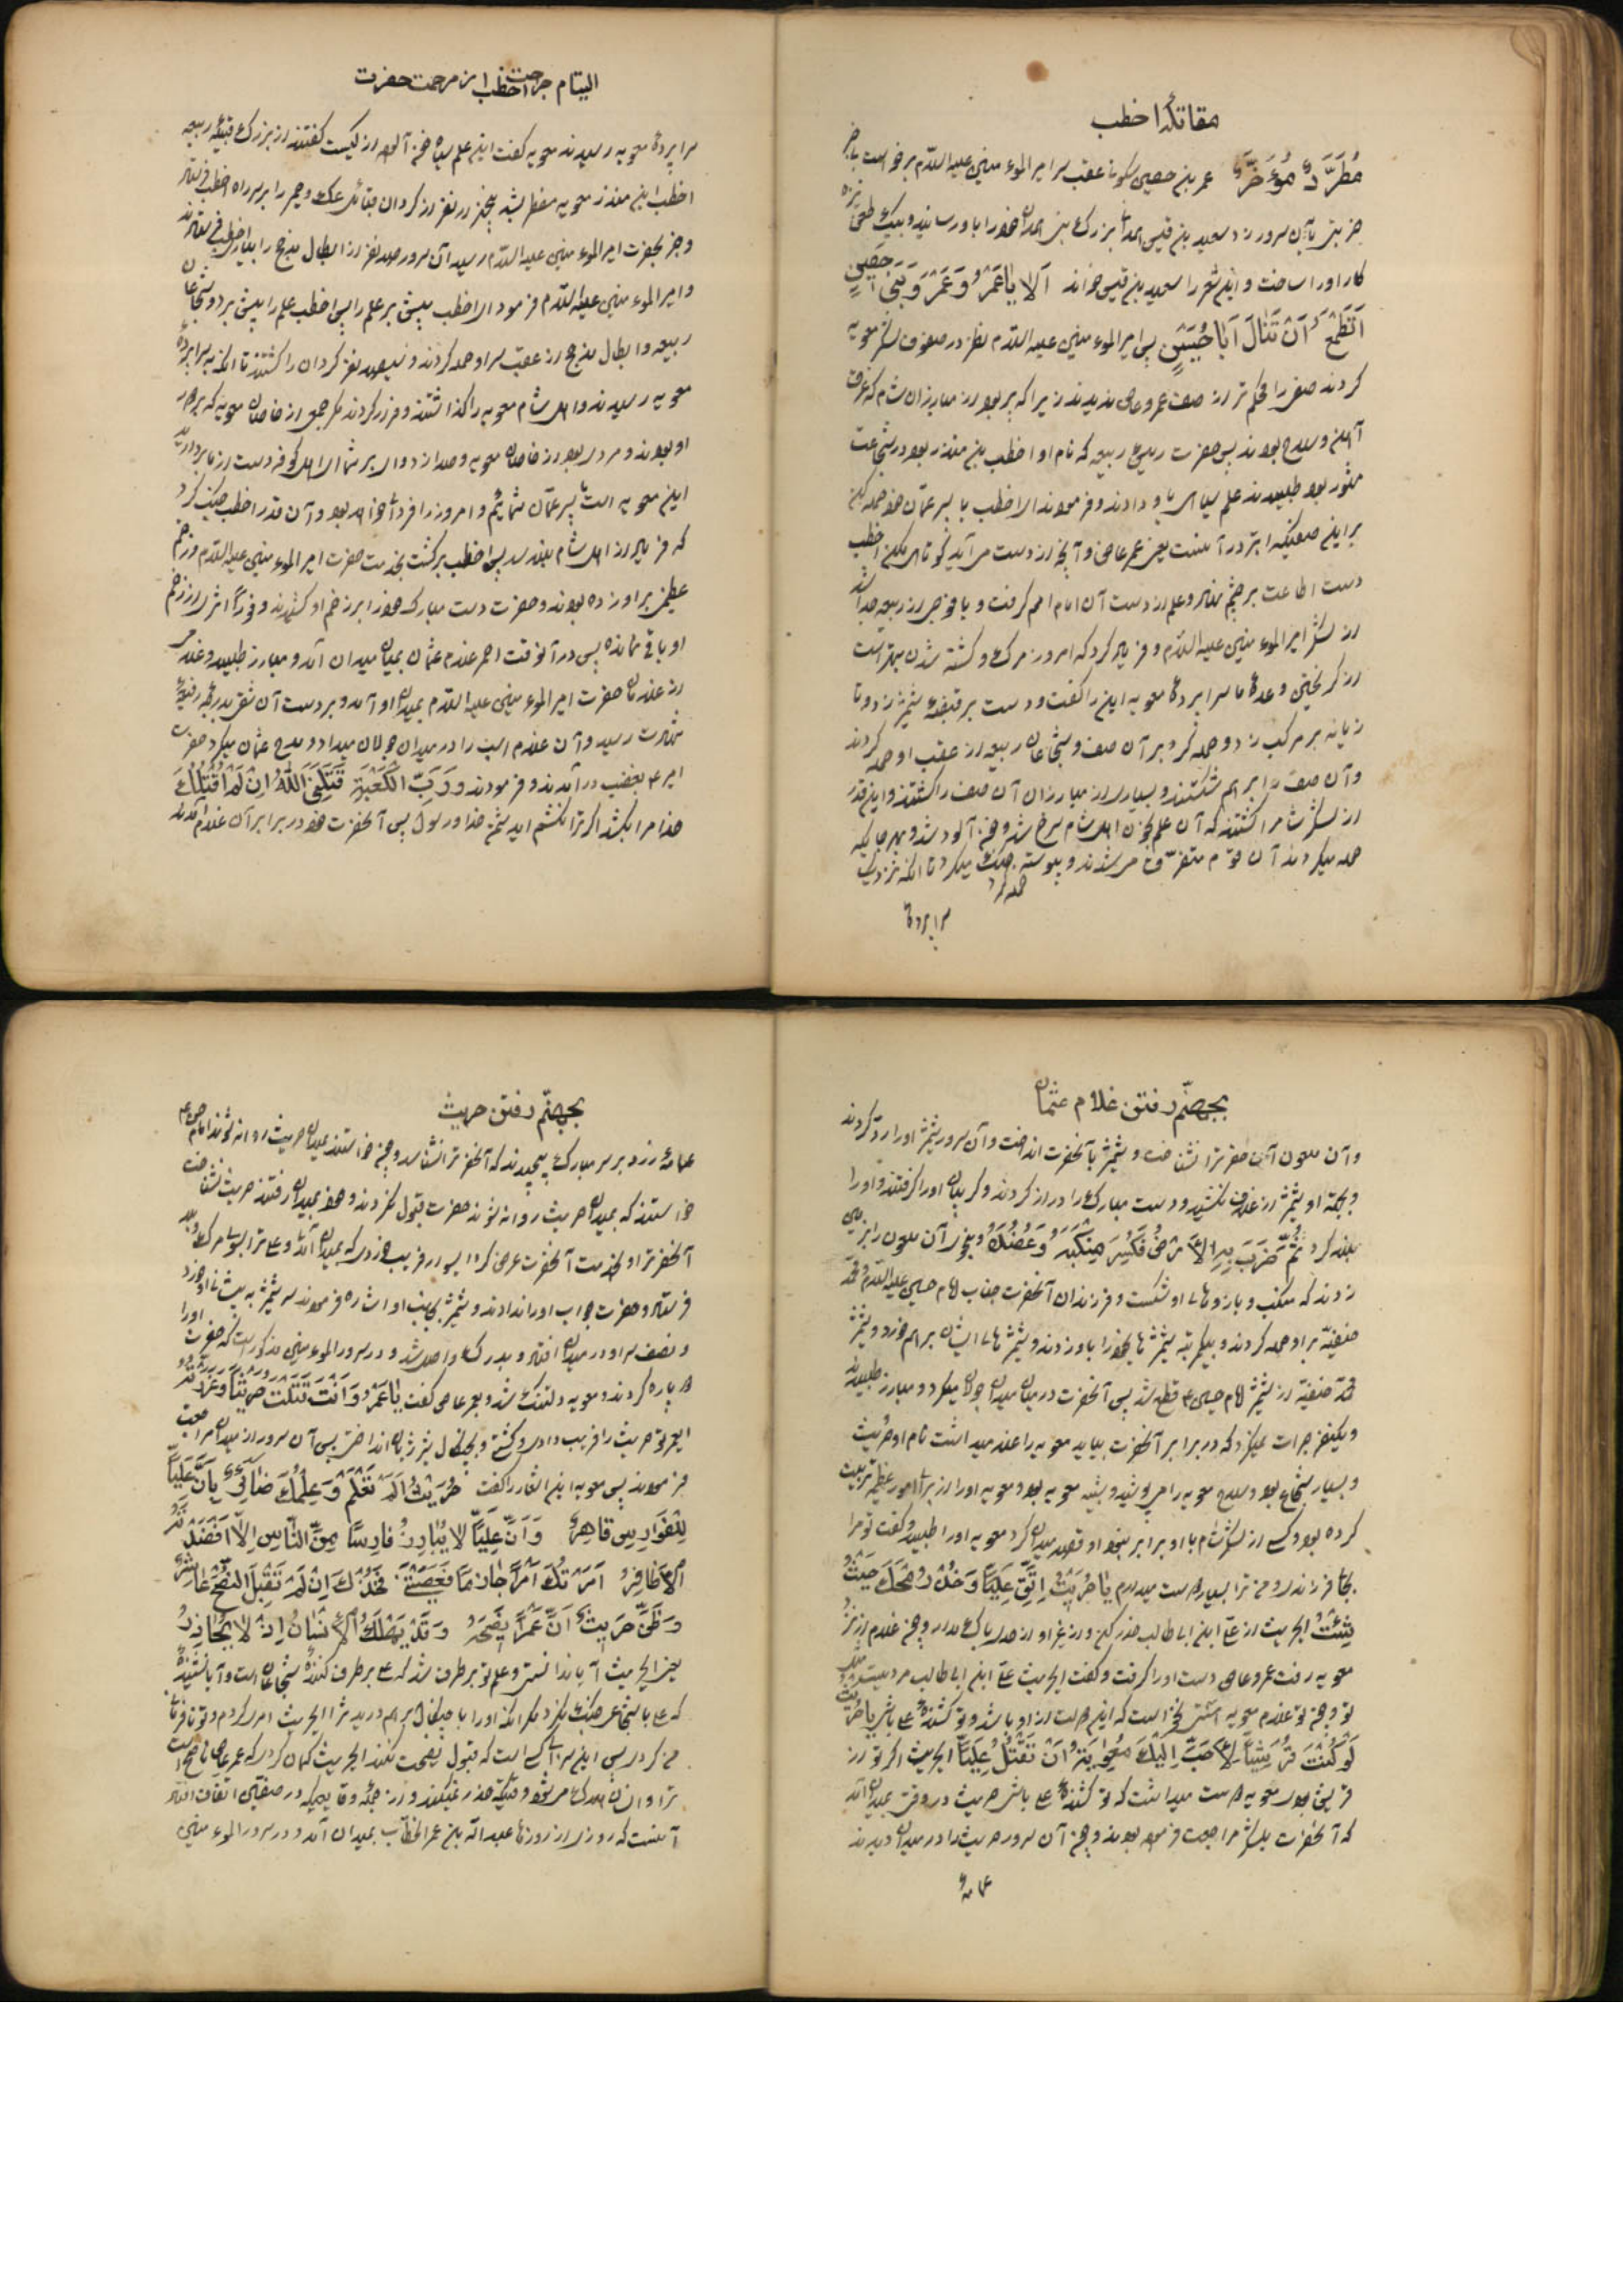 مقاتلهٔ اخطب
مُطَرَّدٌ مُوَءَخَّرٌ عمر بن حصین سکونی عقب سر امیر الموء منین علیه السّلام برخواست تا
ضربتی بآن سرور زند سعید بن قیس همدانی بزرک بنی همدان خود را باو رسانید و بیک طعن نیزه
کار او را ساخت و این شعر را سعید بن قیس خواند اَلا یا عَمْرُ وَ عَمْرَ وَ بَنی حَصینٍ
اَتَطْمَعُ اَنْ تَنالَ اَبا حُسَیْنٍ پس امیر الموء منین علیه السّلام نظر در صفوف لشکر معویه
کردند صفی را محکم تر از صف عمرو عاص ندیدند زیرا که پر بود از مبارزان شام که غرق
آهن و سلاح بودند پس حضرت رئیس ربیعه که نام او اخطب بن منذر بود در شجاعت
مشهور بود طلبیدند علم سیاهی باو دادند و فرمودند ای اخطب با پسر عمّان خود حمله کن
بر این صفیکه ابتر در آنست یعنی عمر عاص و آنچه از دست می آید کوتاهی مکن اخطب
دست اطاعت بر چشم نهاد و علم از دست آن امام امم کرفت و با فوجی از ربیعه جدا شد
از لشکر امیر الموء منین علیه السّلام و فریاد کرد که امروز مرک و کشته شدن بهتر است
از کریختن و وعده کاه ما سراپرده معویه این را کفت و دست بر قبضهٔ شمشیر زد و تا
زیانه بر مرکب زد و حمله کرد بر آن صف و شجاعان ربیعه از عقب او حمله کردند
و آن صف را بر هم شکستند و بسیاری از مبارزان آن صف را کشتند و این قدر
از لشکر شام را کشتند که آن علم بخون اهل شام سرخ شد و خون آلود شد و بهر جا که
حمله میکردند آن قوم متفرّق می شدند و پیوسته جنک میکرد تا آنکه نزدیک
حمله کرد
سراپردهٔ
التیام جراحت اخطب از مرحمت حضرت
سراپردهٔ معویه رسیدند معویه کفت این علم سیاه خون آلود از کیست کفتند از بزرک قبیله ربیعه
اخطب ابن منذر معویه مضطرب شد پنجهزار نفر از کردان قبائل عک و حمیر را بر سر راه اخطب فرستاد
و خبر بحضرت امیر الموء منین علیه السّلام رسید آن سرور صد نفر از ابطال مذحج را بمدد اخطب فرستادند
و امیر الموء منین علیه السّلام فرمود ای اخطب پیش بر علم را پس اخطب علم را پیش برد و شجاعان
ربیعه و ابطال مذحج از عقب سر او حمله کردند و سیصد نفر کردان را کشتند تا آنکه بسراپردهٔ
معویه رسیدند و اهل شام معویه را کذاشتند و فرار کردند مکر جمعی از خاصان معویه که همراه
او بودند و مردی بود از خاصان معویه و صدا زد وای بر شما ای اهل کوفه دست از ما بردارید
این معویه است پسر عمّان شمائیم و امروز را فردائی خواهد بود و آن قدر اخطب جنک کرد
که فریاد از اهل شام بلند شد پس اخطب برکشت بخدمت حضرت امیر الموء منین علیه السّلام و زخم
عظیمی بر او زده بودند و حضرت دست مبارک خود را بر زخم او کشیدند و فوراً اثری از زخم
او باقی نمانده پس در آنوقت احمر غلام عثمان بمیان میدان آمد و مبارز طلبید و غلامی
از غلامان حضرت امیر الموء منین علیه السّلام بمیدان او آمد و بر دست آن شقی بدرجهٔ رفیعهٔ
شهادت رسید و آن غلام اسب را در میدان جولان میداد و مدح عثمان میکرد حضرت
امیر ع بغضب در آمدند و فرمودند وَ رَبِّ الْکَعْبَةِ قَتَلَنِیَ اللّهُ اِنْ لَمْ اَقْتُلْکَ
خدا مرا بکشد اکر ترا نکشم ای دشمن خدا و رسول پس آنحضرت خود در برابر آن غلام آمدند
بجهنّم رفتن غلام عثمان
و آن ملعون آنحضرترا نشناخت و شمشیر بآنحضرت انداخت و آن سرور شمشیر او را ردّ کردند
و بجهة او شمشیر از غلاف نکشید و دست مبارک را دراز کردند و کریبان او را کرفتند و او را
بلند کرد ثُمَّ ضَرَبَ بِهِ الْاَرْضَ فَکَسَرَ مَنْکِبَهُ وَ عَضُدَهُ و چنان آن ملعون را بزمین
زدند که منکب و بازوهای او شکست و فرزندان آنحضرت جناب امام حسین علیه السّلام و محمّد
حنفیّه بر او حمله کردند و بیکمرتبه شمشیرهای خود را باو زدند و شمشیرهای ایشان بر هم خورد و شمشیر
محمّد حنفیّه از شمشیر امام حسین ع قطع شد پس آنحضرت در میان میدان جولان میکرد و مبارز طلبیدند
و یکنفر جرات نمیکرد که در برابر آنحضرت بیاید معویه را غلامی داشت نام او حریث
و بسیار شجاع بود و سلاح معویه را می پوشید و شبیه معویه بود و معویه او را از برای امور عظیم تربیت
کرده بود و کسی از لشکر شام با او برابر نبود او قصد میدان کرد معویه او را طلبید و کفت تو مرا
بجای فرزندی و من ترا بسیار دوست میدارم یا حُرَیْثُ اِتَّقِ عَلِیّاً وَ ضَعْ رُمْحَکَ حَیْثُ
شِئْتَ ای حریث از علی ابن ابی طالب حذر کن و از غیر او از احدی باک مدار و چون غلام از نزد
معویه رفت عمرو عاص دست او را کرفت و کفت ای حریث علی ابن ابی طالب مردیست
تو و چون تو غلام معویه استی نخواست که این مزیت از او باشد و تو کشندهٔ علی باشی یا حُرَیْثُ
لَوْ کُنْتَ قُرَشِیّاً لَاَحَبَّ اِلَیْکَ مُعٰوِیَةُ اَنْ تَقْتُلَ عَلِیّاً ای حریث اکر تو از
قریش بودی معویه دوست میداشت که تو کشندهٔ علی باشی حریث در وقتی بمیدان آمد
که آنحضرت بلشکر مراجعت فرموده بودند و چون آن سرور حریث را در میدان دیدند
عمامهٔ
بجهنّم رفتن حریث
عمامهٔ زرد بر سر مبارک پیچیدند که آنحضرترا نشناسد و چون خواستند بمیدان حریث روانه شوند امام حسن ع
خواستند که بمیدان حریث روانه شوند حضرت قبول نکردند و خود بمیدان رفتند حریث نشناخت
آنحضرترا و بخدمت آنحضرت عرض کرد ای سوار فریب خوردی که بمیدان آمدی
فرستاد و حضرت جواب او را ندادند و شمشیر بجانب او اشاره فرمودند سر شمشیر به پیشانی او خورد
و نصف سر او در میدان افتاد و بدرک واصل شد و در سرور الموء منین مذکور است که حضرت او را
دو پاره کردند و معویه دلتنک شد و بعمر عاص کفت یا عَمْرُو اَنْتَ قَتَلْتَ حُرَیْثاً وَ غَرَرْتَهُ
ای عمر تو حریث را فریب دادی و کشتی و بچنکال شیر ژیان انداختی پس آن سرور از میدان مراجعت
فرمودند پس معویه این اشعار را کفت حُرَیْثُ اَلَمْ تَعْلَمْ وَ عِلْمُکَ ضائِعٌ بِاَنَّ عَلِیّاً
لِلْفَوارِسِ قاهِرٌ وَ اَنَّ عَلِیّاً لا یُبارِزُ فارِساً مِنَ النّاسِ اِلّا اَقْصَدَتْهُ
الْاَظافِرُ اَمَرْتُکَ اَمْراً جازِماً فَعَصَیْتَنی فَجَدُّکَ اِنْ لَمْ تَقْبَلِ النُّصْحَ عاثِرُ
وَ ظَنَّ حُرَیْثٌ اَنَّ عَمْراً نَصیحُهُ وَ قَدْ یَهْلَکُ الْاِنْسانُ اِذْ لا یُحاذِرُ
یعنی ای حریث آیا ندانستی و علم تو برطرف شد که علی برطرف کنندهٔ شجاعان است و آیا نشنیدهٔ
که علی با شجاعی جنک نکرد مکر آنکه او را با چنکال بر هم درید ترا ای حریث امر کردم و تو نافرمانی
من کردی پس این سزای کسی است که قبول نصیحت نکند ای حریث کمان کردی که عمر عاص ناصح است
ترا و انسان هلاک می شود وقتیکه حذر نمیکند و از جملهٔ وقایعیکه در صفّین اتّفاق افتاد
آنست که روزی از روزها عبد اللّه بن عمر الخطّاب بمیدان آمد و در سرور الموء منین